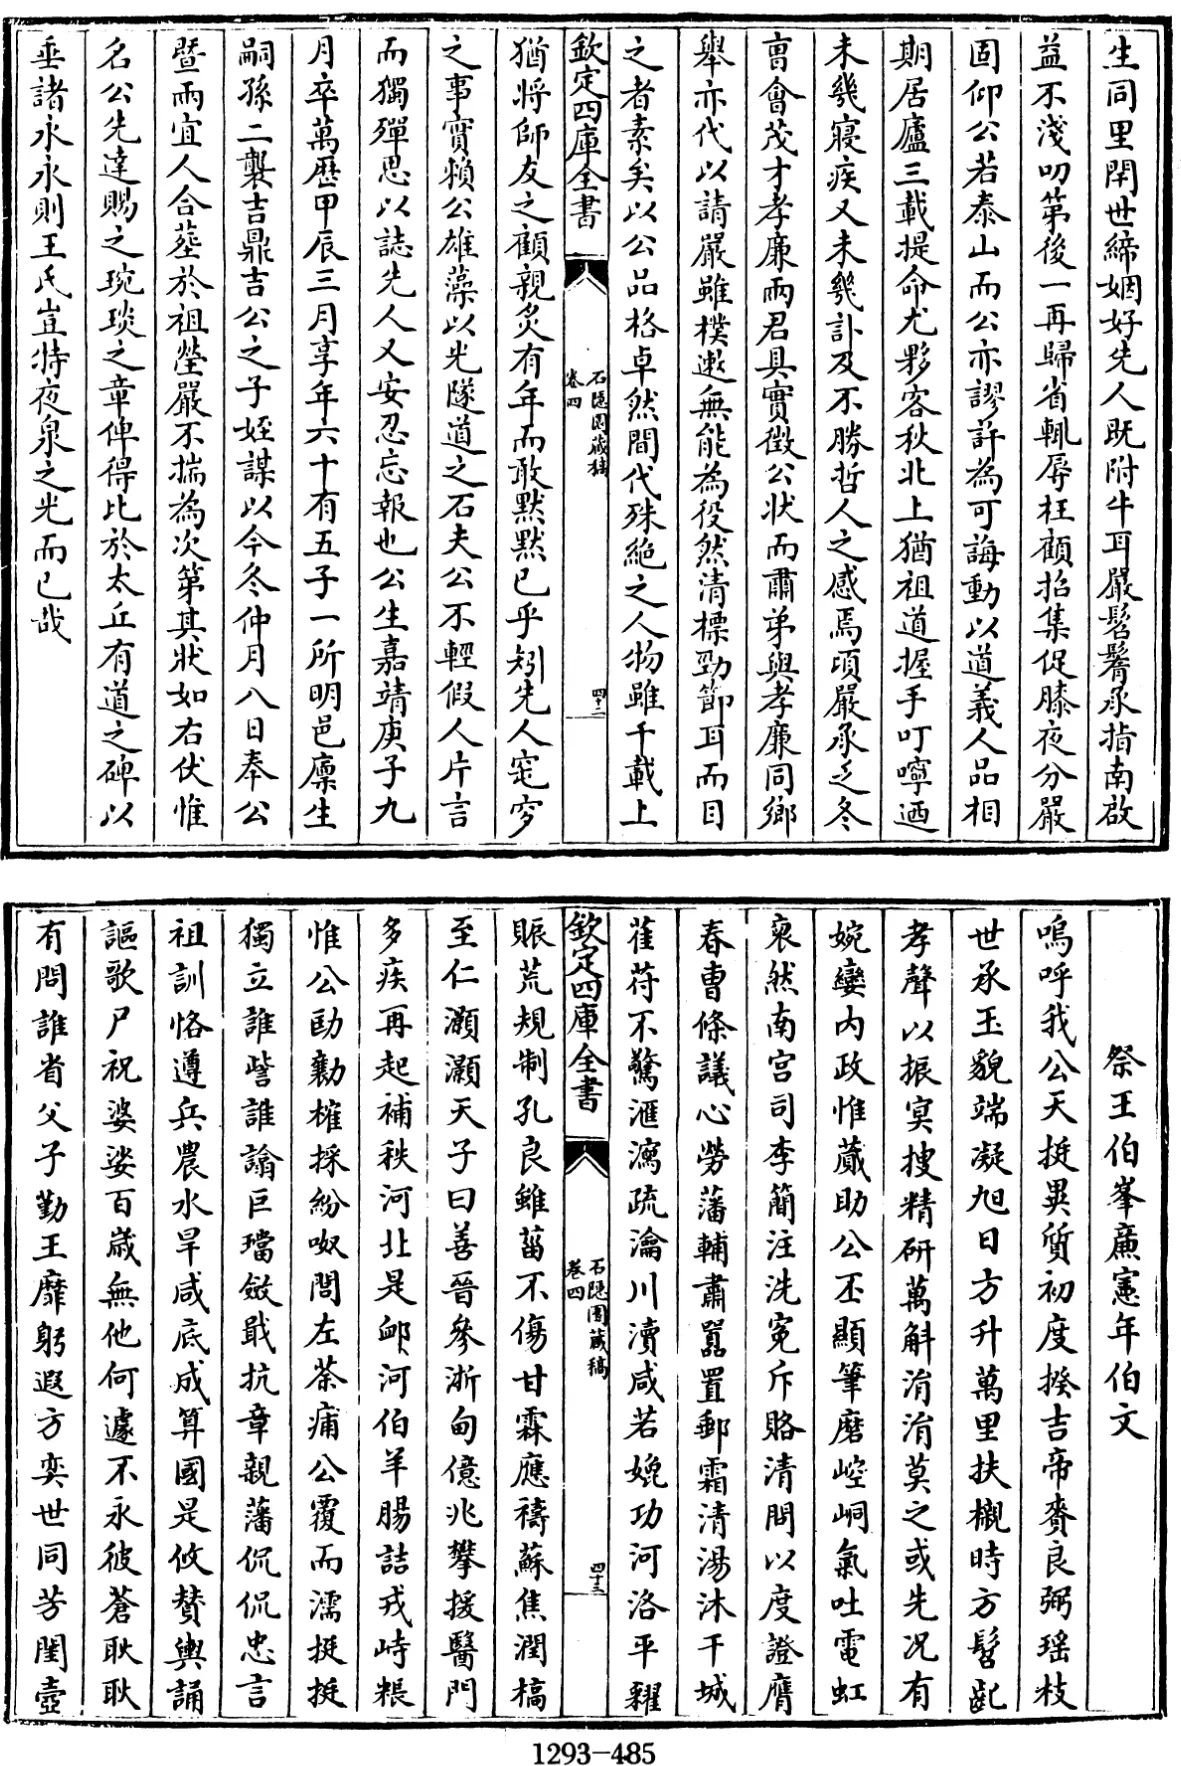 生同里閈世締姻好先人既附牛耳嚴髫鬌承指南啟
益不淺叨第後一再歸省輒辱枉顧招集促膝夜分嚴
固仰公若泰山而公亦謬許為可誨動以道義人品相
期居廬三載提命尤夥客秋北上猶祖道握手叮嚀迺
未幾寢疾又未幾訃及不勝哲人之感焉頃嚴承乏冬
曹會茂才孝廉兩君具實徵公狀而肅弟與孝廉同鄉
舉亦代以請嚴雖樸遫無能為役然清標勁節耳而目
之者素矣以公品格卓然間代殊絶之人物雖千載上
欽定四庫全書
石隱園藏稿
卷四
四十二
猶將師友之顧親炙有年而敢默默已乎矧先人窀穸
之事實賴公雄藻以光隧道之石夫公不輕假人片言
而獨殫思以誌先人又安忍忘報也公生嘉靖庚子九
月卒萬歷甲辰三月享年六十有五子一所明邑廩生
嗣孫二龔吉鼎吉公之子姪謀以今冬仲月八日奉公
暨兩宜人合葬於祖塋嚴不揣為次第其狀如右伏惟
名公先達賜之琬琰之章俾得比於太丘有道之碑以
垂諸永永則王氏豈特夜泉之光而已哉
祭王伯峯廉憲年伯文
嗚呼我公天挺異質初度揆吉帝賚良弼瑶枝
世承玉貌端凝旭日方升萬里扶櫬時方髫齔
孝聲以振冥搜精研萬斛涓涓莫之或先况有
婉孌内政惟蕆助公丕顯筆磨崆峒氣吐電虹
裒然南宫司李簡注洗寃斥賂清問以度證膺
春曹條議心勞藩輔肅嚚置郵霜清湯沐干城
萑苻不驚滙漓疏瀹川瀆咸若娩功河洛平糴
欽定四庫全書
石隱園藏稿
卷四
四十三
賑荒規制孔良雖菑不傷甘霖應禱蘇焦潤槁
至仁灝灝天子曰善晉參浙甸億兆攀援醫門
多疾再起補秩河北是卹河伯羊腸詰戎峙糗
惟公劻勷榷採紛呶閭左荼痡公覆而濡挺挺
獨立誰訾誰諭巨璫斂戢抗章親藩侃侃忠言
祖訓恪遵兵農水旱咸底成算國是攸贊輿誦
謳歌尸祝婆娑百歲無他何遽不永彼蒼耿耿
有問誰省父子勤王靡躬遐方奕世同芳閨壼
1293-485